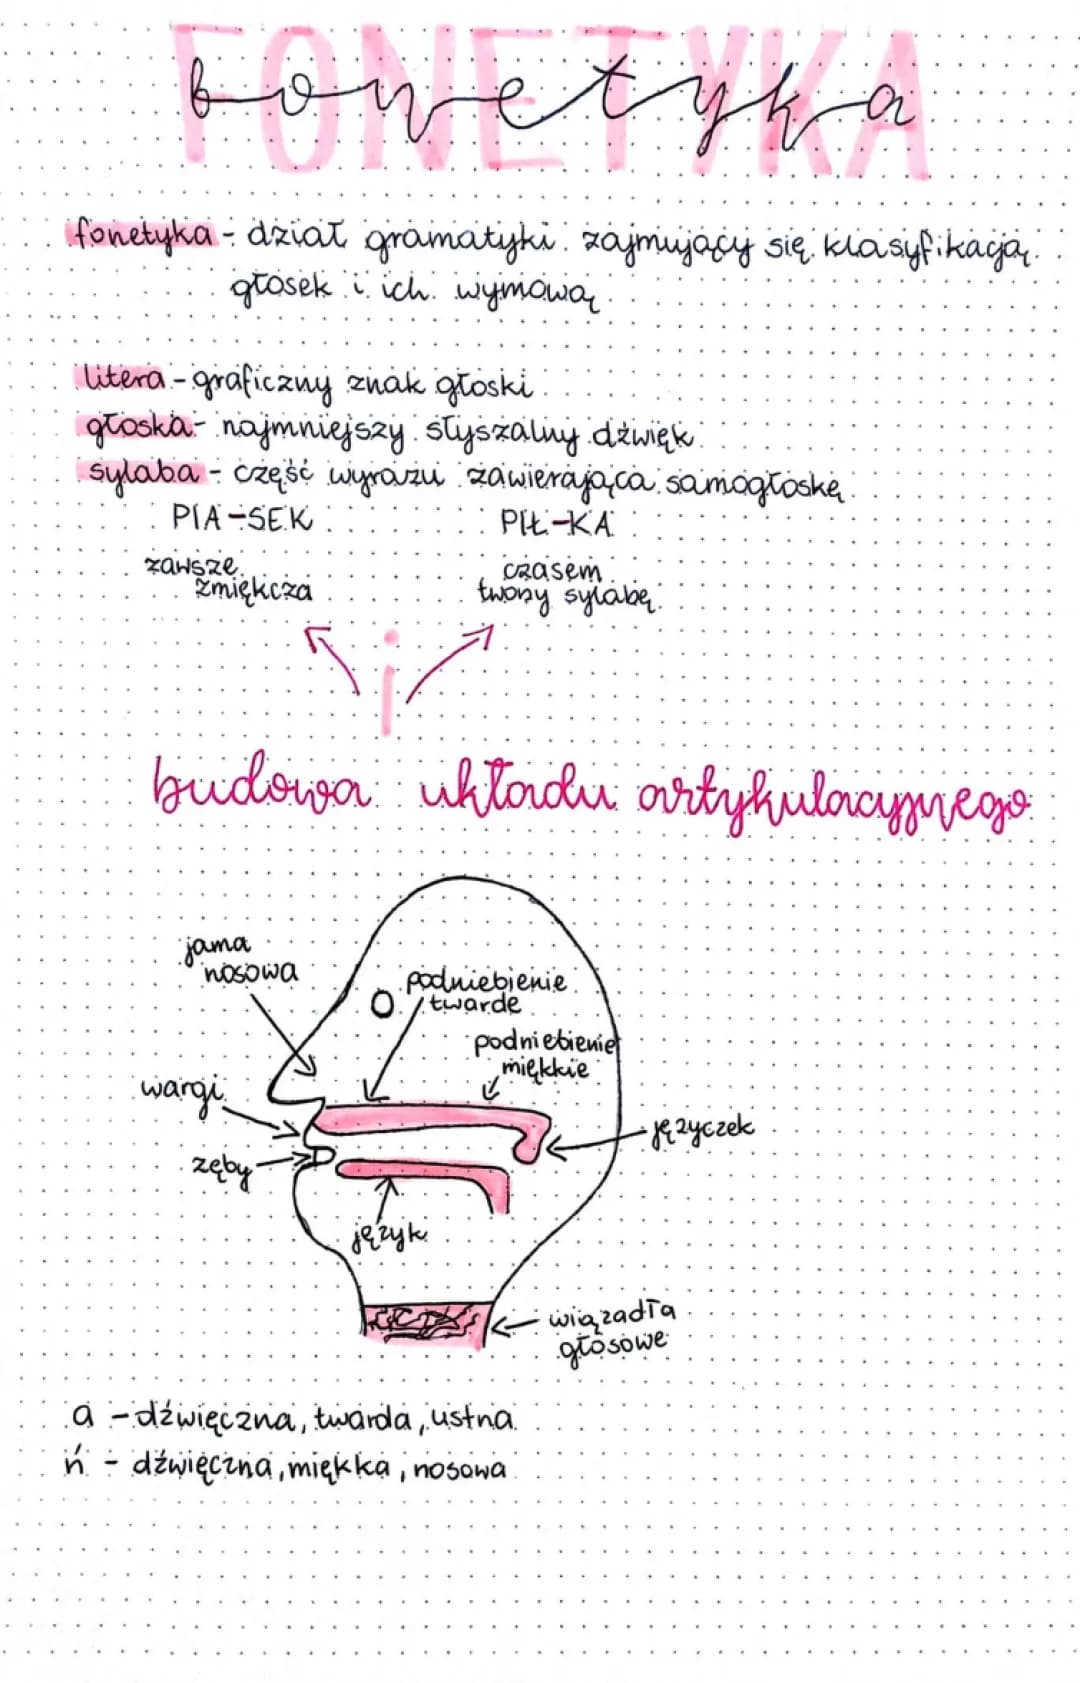 FONETYKA
fonetyka
fonetyka - dział gramatyki zajmujący się klasyfikacją
głosek i ich wymową
litera - graficzny znak głoski
głoska - najmniejszy słyszalny dźwięk
sylaba - część wyrazu zawierająca samogłoskę
PIA-SEK PIŁ-KA
zawsze czasem
zmiękcza tworzy sylabę
i
budowa układu artykulacyjnego
jama
nosowa
podniebienie
twarde
podniebienie
miękkie
wargi
języczek
zęby
język
wiązadła
głosowe
a - dźwięczna, twarda, ustna
ń - dźwięczna, miękka, nosowa